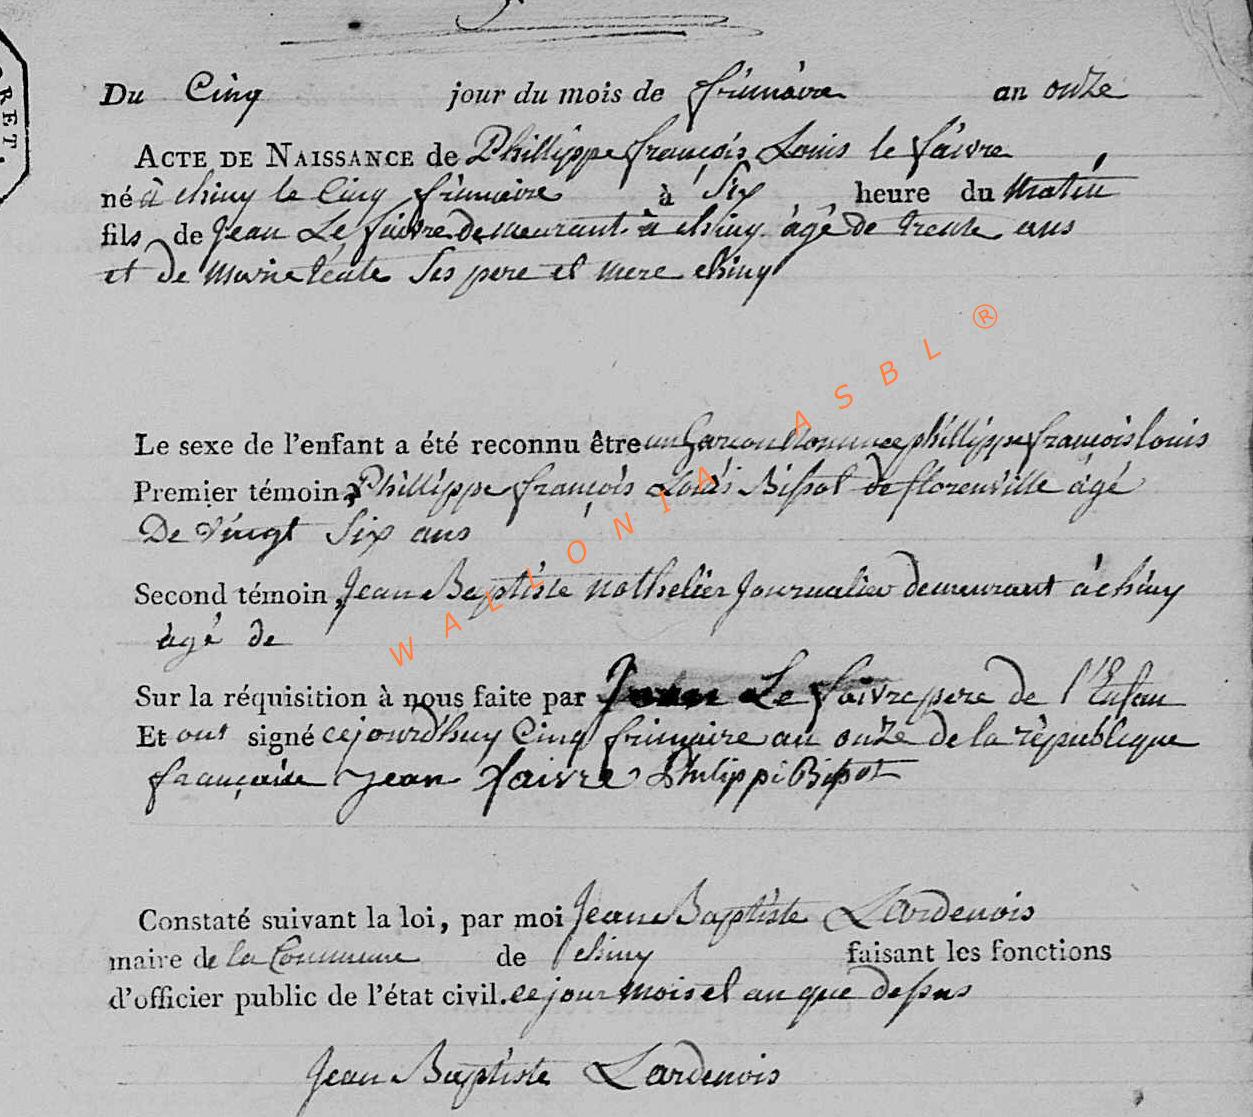 Du Cinq jour du mois de frimaire an onze
ACTE DE NAISSANCE de Phillippe françois Louis le faivre
né à chiny le Cinq frimaire à Six heure du Matin
fils de Jean Le faivre Demeurant à chiny âgé De trente ans
et De Marie Ses pere et mere chiny
Le sexe de l'enfant a été reconnu être un Garcon Nommee phillippe françois louis
Premier témoin, Phillippe françois Louis Bissot de florenville âgé
De vingt Six ans
Second témoin, Jean Baptiste Nothelier Journalier demeurant à chiny
âgé de
Sur la réquisition à nous faite par Jean Le faivre pere de l'Enfan
Et ont signé cejourd'huy Cinq frimaire an onze De la république
française Jean faivre Philippi Bissot
Constaté suivant la loi, par moi Jean Baptiste Lardenois
maire de la Commune de chiny faisant les fonctions
d'officier public de l'état civil. ce jour mois et an que dessus
Jean Baptiste Lardenois
RET.
WALLONIA ASBL ®